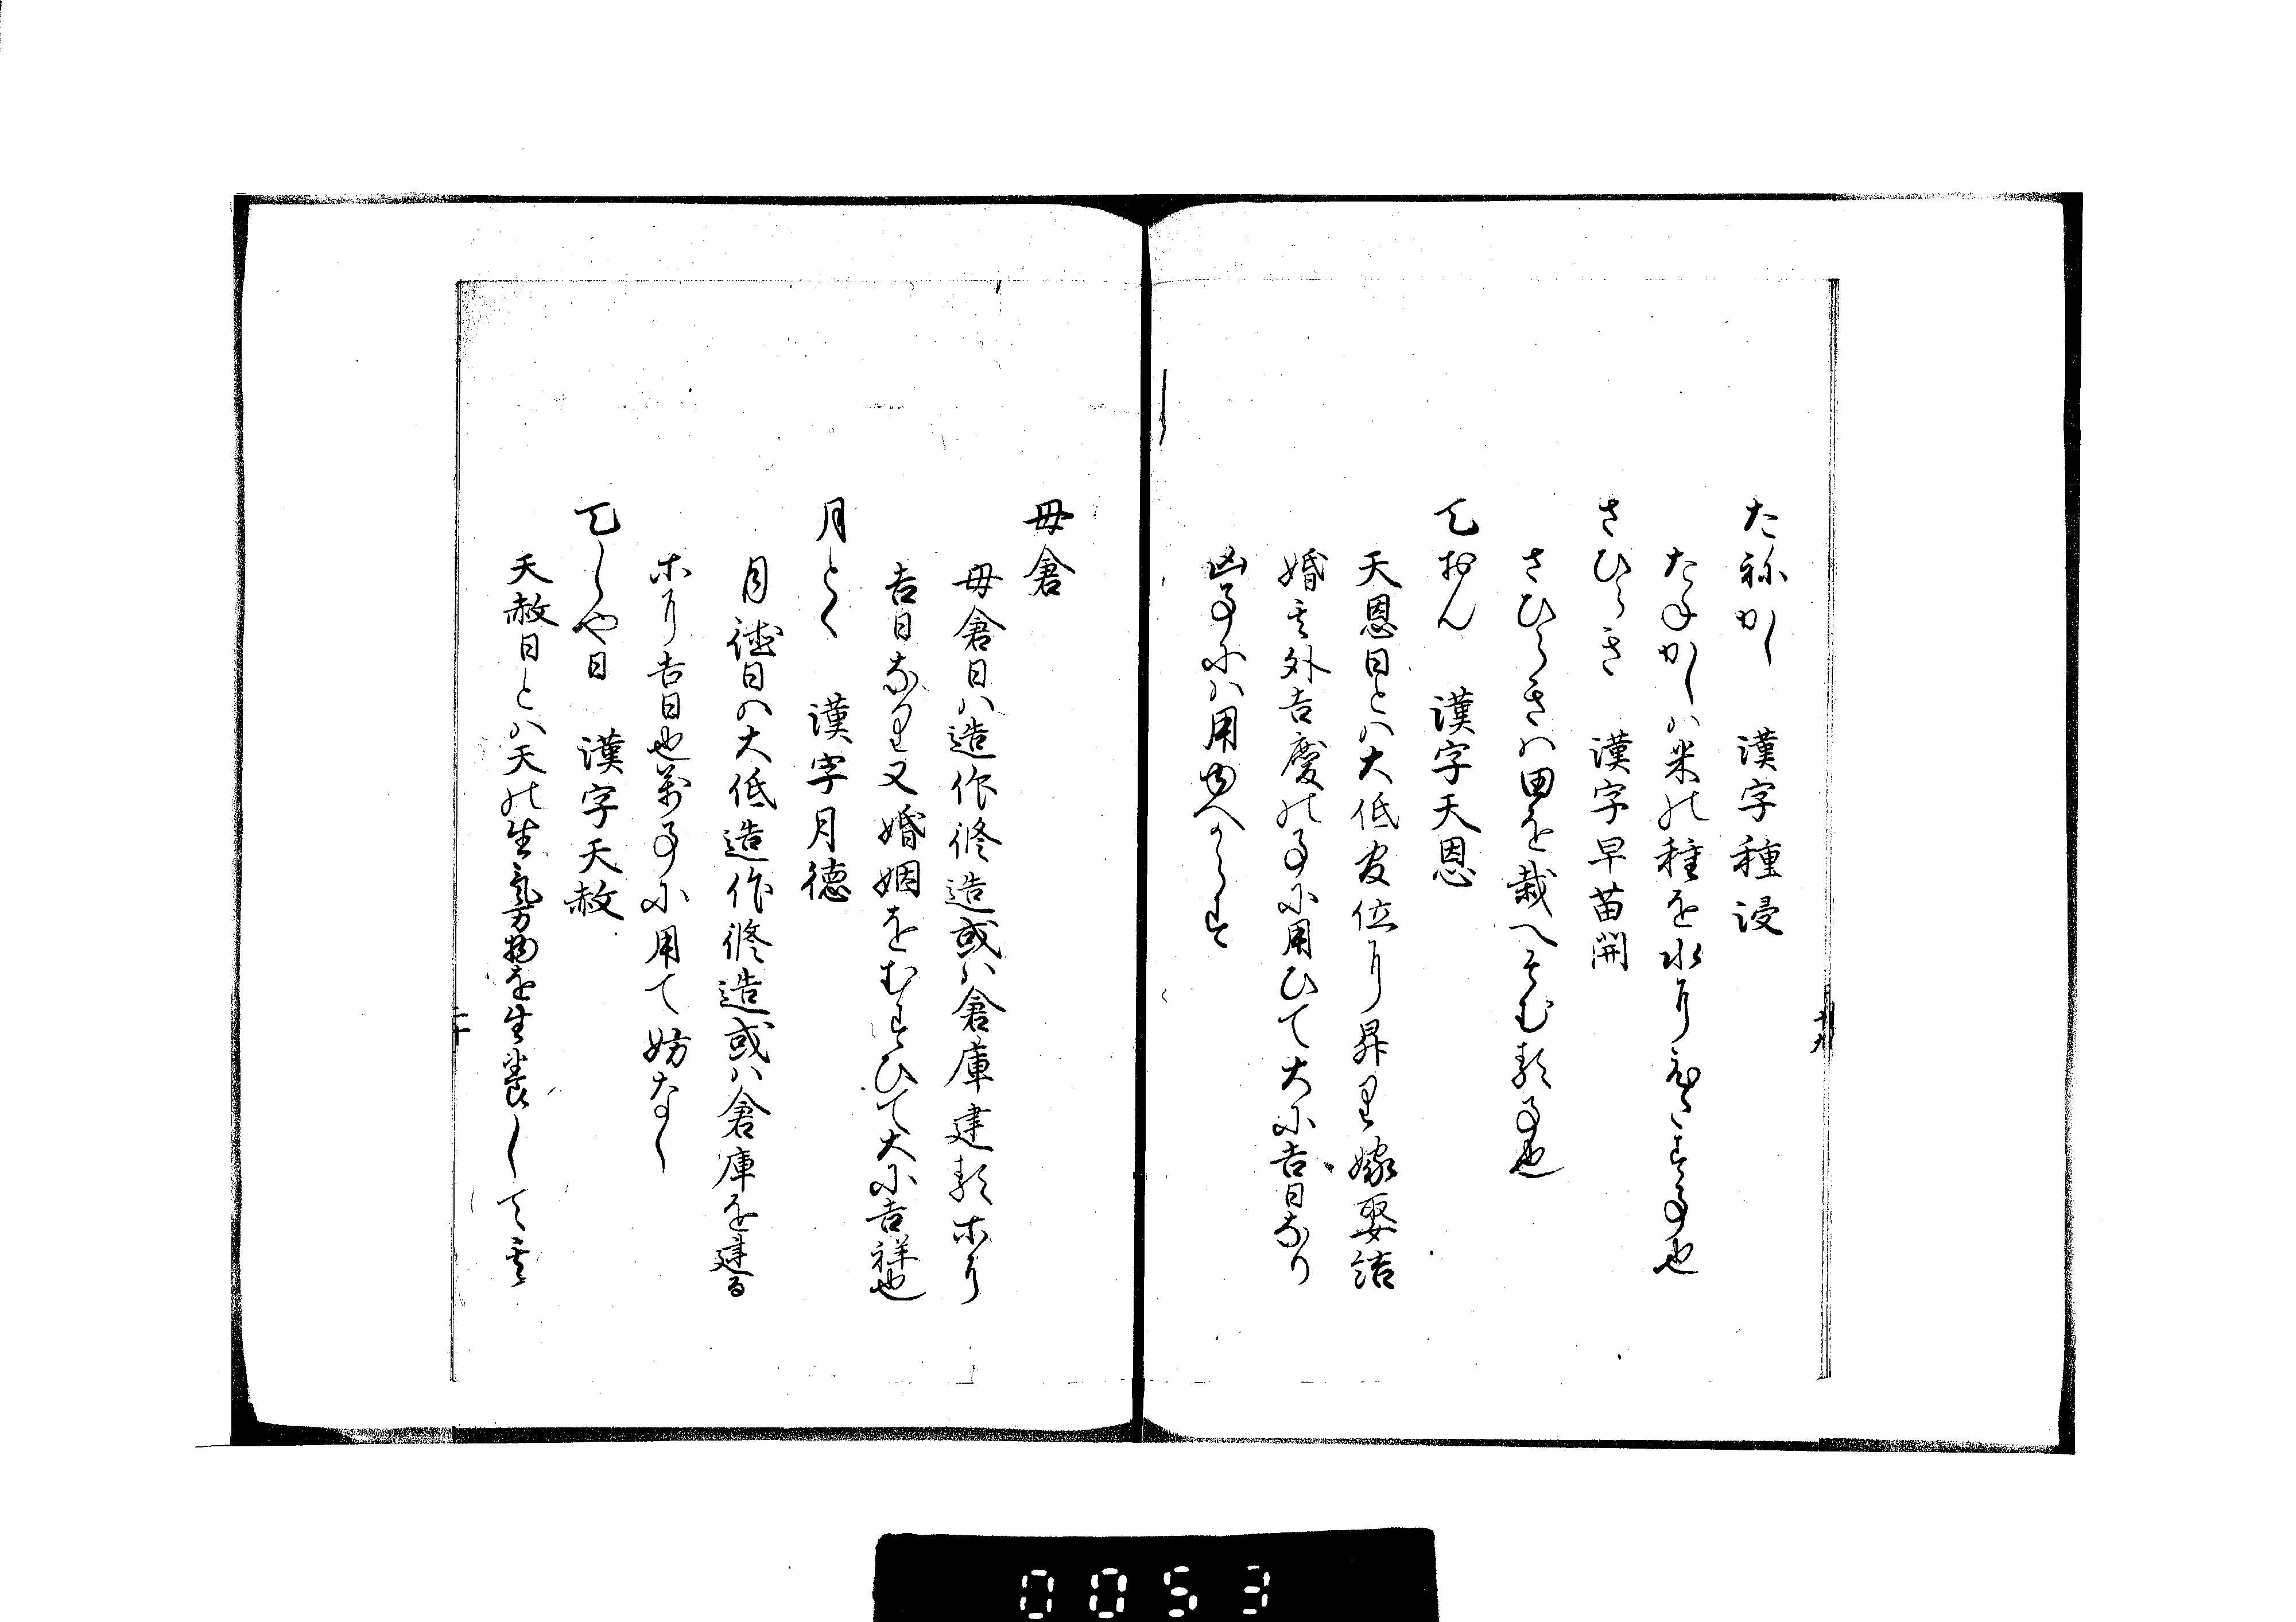 たねかし　漢字種浸
たねかしハ米の種を水にひたす事也
さひらき　漢字早苗開
さひらきハ田を栽へそむる事也
天おん　漢字天恩
天恩日とハ大低官位に昇り嫁娶結
婚其外吉慶の事に用ひて大に吉日なり
凶事にハ用ゆへからす
十九
母倉
母倉日ハ造作修造或ハ倉庫建る等に
吉日なり又婚姻をむすひて大に吉祥也
月とく　漢字月徳
月徳日ハ大低造作修造或ハ倉庫を建る
等に吉日也萬事に用て妨なし
天しや日　漢字天赦
天赦日とハ天の生氣万物を生養して其
二十
0053